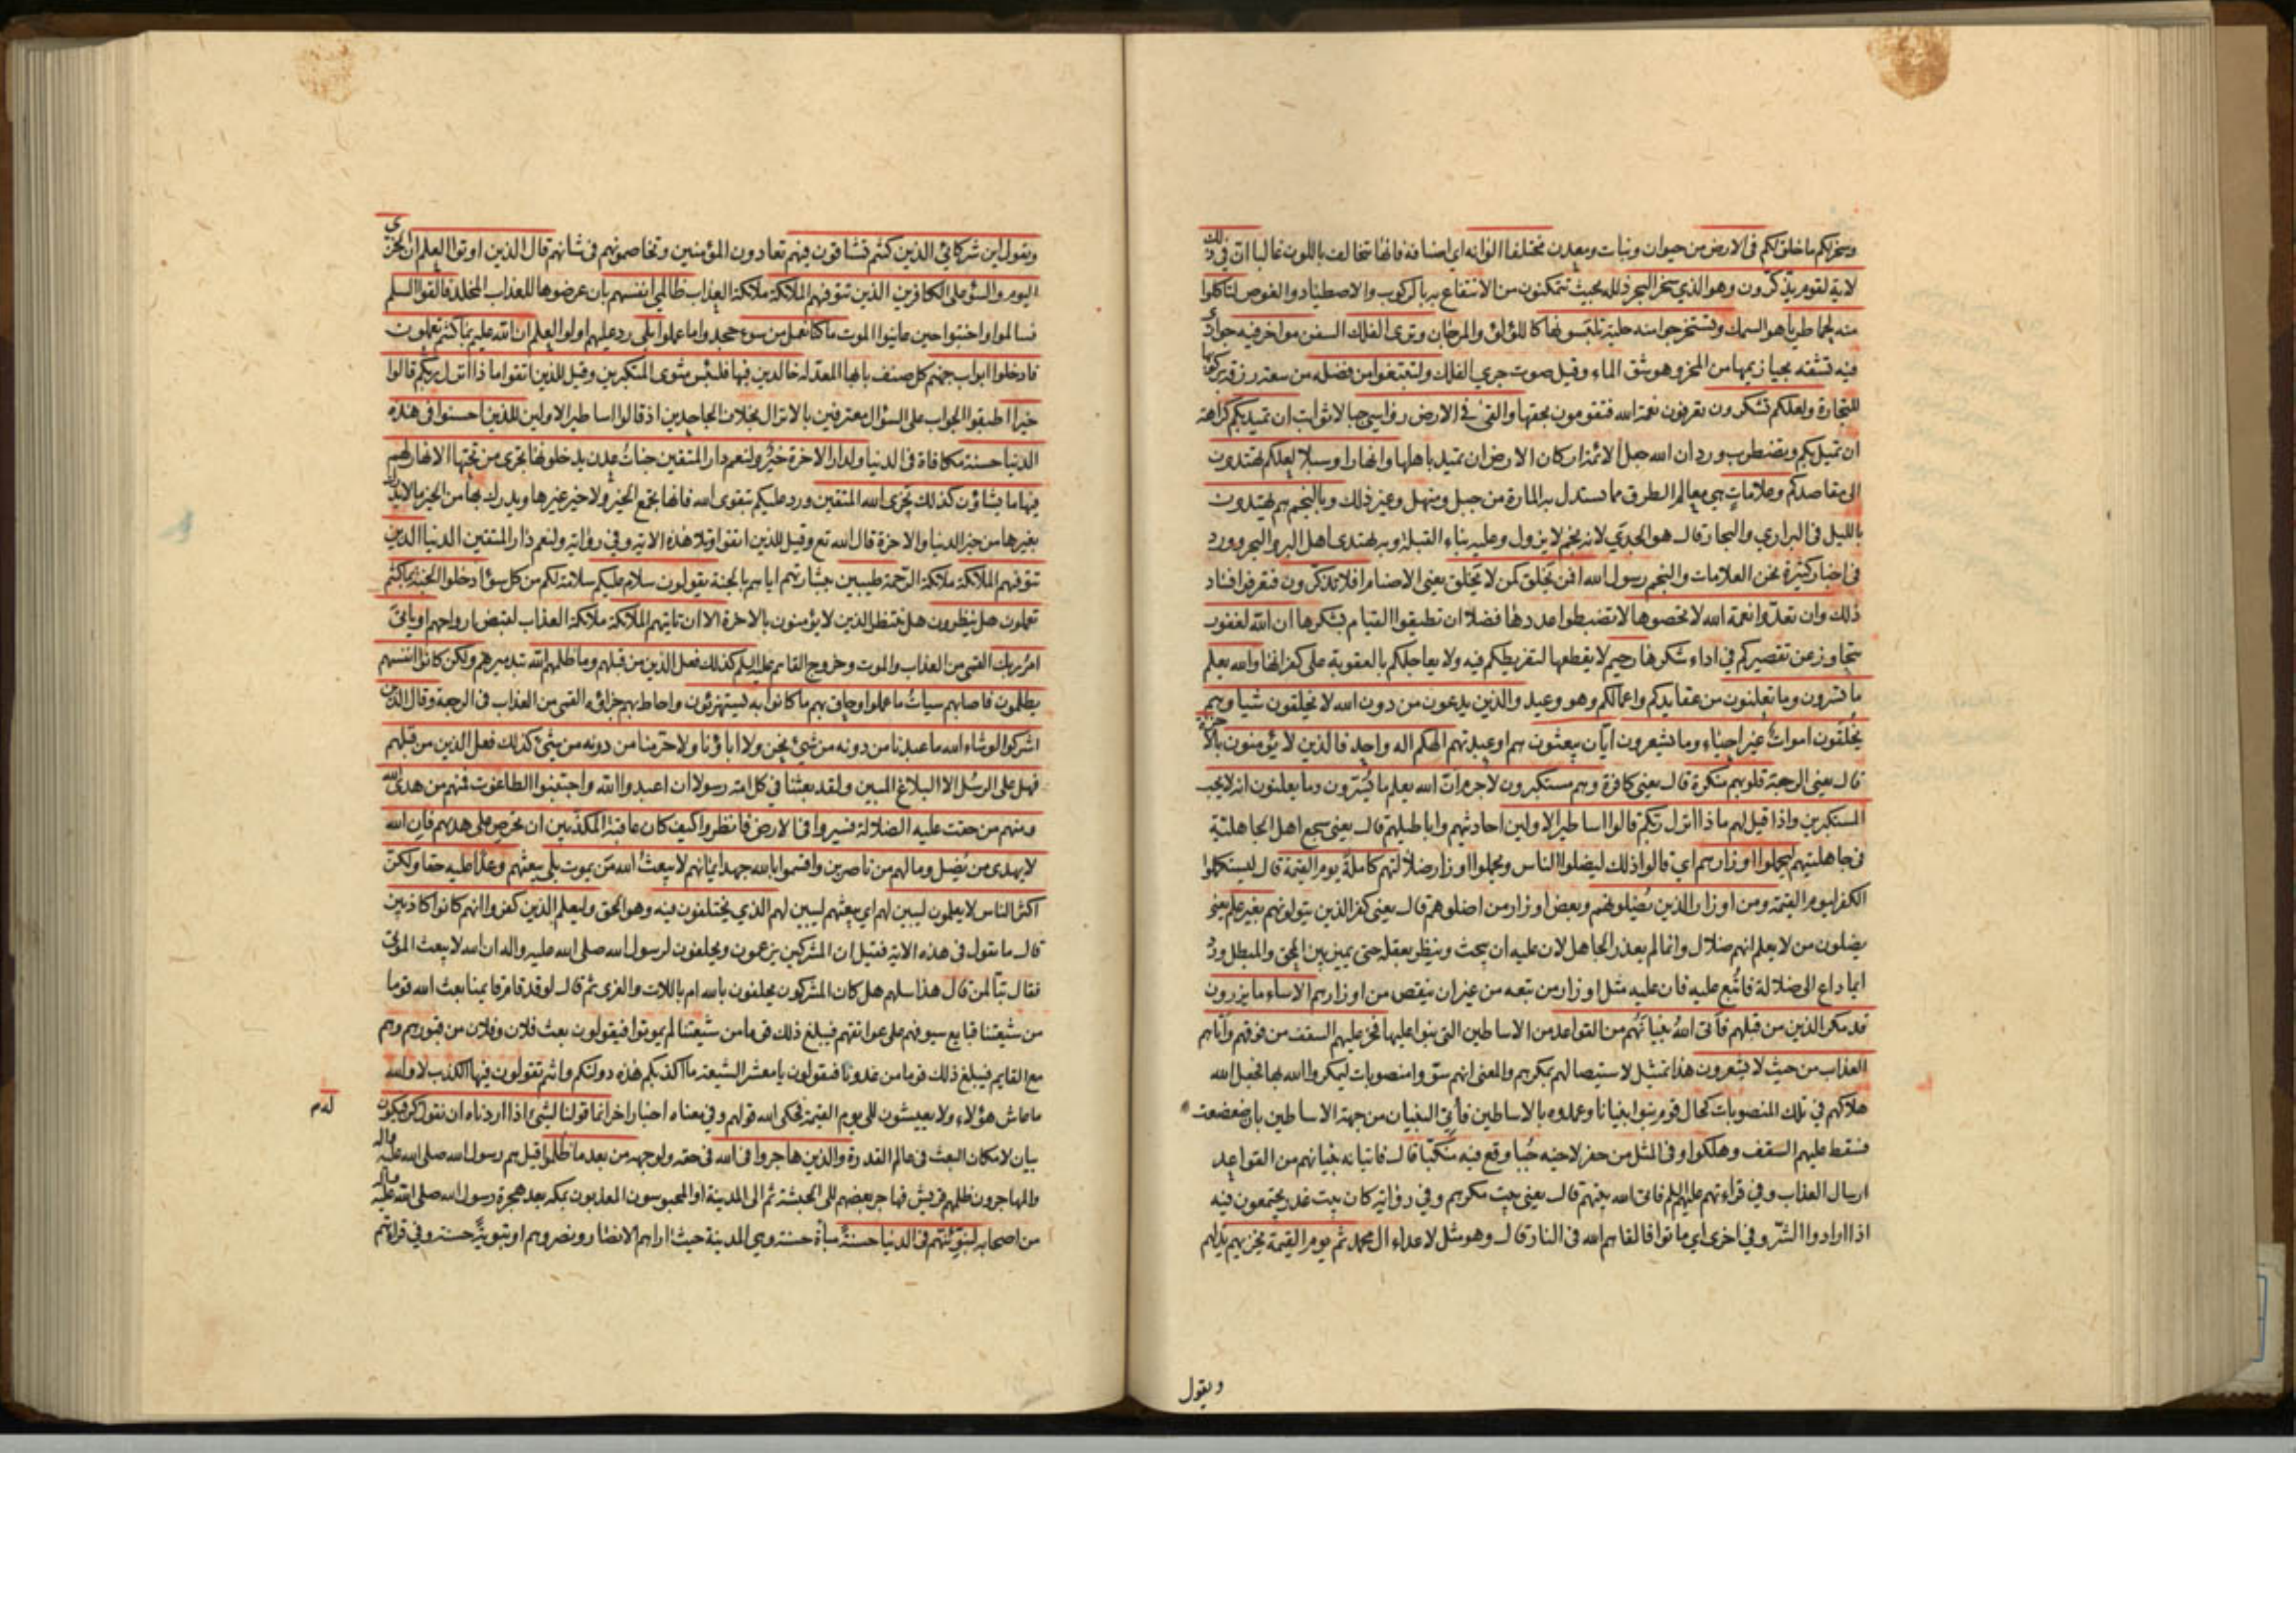 وسخر لكم ما خلق لكم في الارض من حيوان ونبات ومعدن مختلفا الوانه اي اصنافه فانها تتخالف باللون غالبا ان في ذلك
لاية لقوم يذكرون وهو الذي سخر البحر ذلله بحيث تتمكنون من الانتفاع به بالركوب والاصطياد والغوص لتاكلوا
منه لحما طريا هو السمك وتستخرجوا منه حلية تلبسونها كاللؤلؤ والمرجان وترى الفلك السفن مواخر فيه جواري
فيه تشقه بحيازيمها من المخر وهو شق الماء وقيل صوت جري الفلك ولتبتغوا من فضله من سعة رزقه بركوبها
للتجارة ولعلكم تشكرون تعرفون نعمة الله فتقومون بحقها والقى في الارض رواسي جبالا ثوابت ان تميد بكم كراهة
ان تميل بكم وتضطرب ورد ان الله جعل الائمة اركان الارض ان تميد باهلها وانهارا وسبلا لعلكم تهتدون
الى مقاصدكم وعلامات هي معالم الطرق مما يستدل به المارة من جبل ومنهل وغير ذلك وبالنجم هم يهتدون
بالليل في البراري والبحار قال هو الجدي لانه نجم لا يزول وعليه بناء القبلة وبه يهتدى اهل البر والبحر وورد
في اخبار كثيرة نحن العلامات والنجم رسول الله افمن يخلق كمن لا يخلق يعني الاصنام افلا تذكرون فتعرفوا فساد
ذلك وان تعدوا نعمة الله لا تحصوها لا تضبطوا عددها فضلا ان تطيقوا القيام بشكرها ان الله لغفور
يتجاوز عن تقصيركم في اداء شكرها رحيم لا يقطعها لتفريطكم فيه ولا يعاجلكم بالعقوبة على كفرانها والله يعلم
ما تسرون وما تعلنون من عقايدكم واعمالكم وهو وعيد والذين يدعون من دون الله لا يخلقون شيا وهم
يخلقون اموات غير احياء وما يشعرون ايان يبعثون هم او عبدتهم الهكم اله واحد فالذين لا يؤمنون بالآخرة
قال يعني الرجعة قلوبهم منكرة قال يعني كافرة وهم مستكبرون لا جرم ان الله يعلم ما يسرون وما يعلنون انه لا يحب
المستكبرين واذا قيل لهم ماذا انزل ربكم قالوا اساطير الاولين احاديثهم واباطيلهم قال يعني سجع اهل الجاهلية
في جاهليتهم ليحملوا اوزارهم اي قالوا ذلك ليضلوا الناس ويحملوا اوزار ضلالتهم كاملة يوم القيمة قال ليستكملوا
الكفر ليوم القيمة ومن اوزار الذين يضلونهم وبعض اوزار من اضلوهم قال يعني كفر الذين يتولونهم بغير علم يعني
يضلون من لا يعلم انهم ضلال وانما لم يعذر الجاهل لان عليه ان يبحث وينظر بعقله حتى يميز بين المحق والمبطل ورد
ايما داع الى ضلالة فاتبع عليه فان عليه مثل اوزار من تبعه من غير ان ينقص من اوزارهم الا ساء ما يزرون
قد مكر الذين من قبلهم فأتى الله بنيانهم من القواعد من الاساطين التي بنوا عليها فخر عليهم السقف من فوقهم واتاهم
العذاب من حيث لا يشعرون هذا تمثيل لاستيصالهم بمكرهم والمعنى انهم سووا منصوبات ليمكروا الله بها فجعل الله
هلاكهم في تلك المنصوبات كحال قوم بنوا بنيانا وعمدوه بالاساطين فأتي البنيان من جهة الاساطين بان ضعضعت
فسقط عليهم السقف وهلكوا وفي المثل من حفر لاخيه جبا وقع فيه منكبا قال فاتيانه بنيانهم من القواعد
ارسال العذاب وفي قراءتهم عليهم السلم فاتى الله بيتهم قال يعني بيت مكرهم وفي رواية كان بيت غدر يجتمعون فيه
اذا ارادوا الشر وفي اخرى اي ماتوا فالقاهم الله في النار قال وهو مثل لاعداء ال محمد ثم يوم القيمة يخزيهم يذلهم
ويقول
ويقول اين شركائي الذين كنتم تشاقون فيهم تعادون المؤمنين وتخاصمونهم في شانهم قال الذين اوتوا العلم ان الخزي
اليوم والسوء على الكافرين الذين تتوفيهم الملائكة ملائكة العذاب ظالمي انفسهم بان عرضوها للعذاب المخلد فالقوا السلم
فسالموا واخبتوا حين عاينوا الموت ما كنا نعمل من سوء جحدوا ما عملوا بلى رد عليهم اولوا العلم ان الله عليم بما كنتم تعملون
فادخلوا ابواب جهنم كل صنف بابها المعد له خالدين فيها فلبئس مثوى المتكبرين وقيل للذين اتقوا ماذا انزل ربكم قالوا
خيرا اطبقوا الجواب على السؤال معترفين بالانزال بخلاف الجاحدين اذ قالوا اساطير الاولين للذين احسنوا في هذه
الدنيا حسنة مكافاة في الدنيا ولدار الاخرة خير ولنعم دار المتقين جنات عدن يدخلونها تجرى من تحتها الانهار لهم
فيها ما يشاؤن كذلك يجزى الله المتقين ورد عليكم بتقوى الله فانها تجمع الخير ولا خير غيرها ويدرك بها من الخير ما لا يدرك
بغيرها من خير الدنيا والاخرة قال الله تع وقيل للذين اتقوا وتلا هذه الاية وفي رواية ولنعم دار المتقين الدنيا الذين
تتوفيهم الملائكة ملائكة الرحمة طيبين ببشارتهم اياهم بالجنة يقولون سلام عليكم سلامة لكم من كل سوء ادخلوا الجنة بما كنتم
تعملون هل ينظرون هل ينتظر الذين لا يؤمنون بالاخرة الا ان تاتيهم الملائكة ملائكة العذاب لقبض ارواحهم او ياتي
امر ربك القسى من العذاب والموت وخروج القاسم عليه السلم كذلك فعل الذين من قبلهم وما ظلمهم الله بتدميرهم ولكن كانوا انفسهم
يظلمون فاصابهم سيات ما عملوا وحاق بهم ما كانوا به يستهزئون واحاط بهم جزاؤه القسى من العذاب في الرجعة وقال الذين
اشركوا لو شاء الله ما عبدنا من دونه من شيئ نحن ولا اباؤنا ولا حرمنا من دونه من شيئ كذلك فعل الذين من قبلهم
فهل على الرسل الا البلاغ المبين ولقد بعثنا في كل امة رسولا ان اعبدوا الله واجتنبوا الطاغوت فمنهم من هدى الله
ومنهم من حقت عليه الضلالة فسيروا في الارض فانظروا كيف كان عاقبة المكذبين ان تحرص على هديهم فان الله
لا يهدى من يضل وما لهم من ناصرين واقسموا بالله جهد ايمانهم لا يبعث الله من يموت بلى يبعثهم وعدا عليه حقا ولكن
اكثر الناس لا يعلمون ليبين لهم اي يبعثهم ليبين لهم الذي يختلفون فيه وهو الحق وليعلم الذين كفروا انهم كانوا كاذبين
قال ما تقول في هذه الاية فقيل ان المشركين يزعمون ويحلفون لرسول الله صلى الله عليه واله ان الله لا يبعث الموتى
فقال تبا لمن قال هذا سلهم هل كان المشركون يحلفون بالله ام باللات والعزى ثم قال لو قد قام قايمنا بعث الله قوما
من شيعتنا قبايع سيوفهم على عواتقهم فيبلغ ذلك قوما من شيعتنا لم يموتوا فيقولون بعث فلان وفلان من قبورهم وهم
مع القايم فيبلغ ذلك قوما من عدونا فيقولون يا معشر الشيعة ما اكذبكم هذه دولتكم وانتم تقولون فيها الكذب لا والله
ما عاش هؤلاء ولا يعيشون الى يوم القيمة فحكى الله قولهم وفي معناه اخبار اخر انما قولنا لشئ اذا اردناه ان نقول كن فيكون
بيان لامكان البعث في عالم القدرة والذين هاجروا في الله في حقه ولوجهه من بعد ما ظلموا قيل هم رسول الله صلى الله عليه واله
والمهاجرون ظلمهم قريش فهاجر بعضهم الى الحبشة ثم الى المدينة او المحبوسون المعذبون بمكة بعد هجرة رسول الله صلى الله عليه واله
من اصحابه لنبوئنهم في الدنيا حسنة مباة حسنة وهي المدينة حيث اواهم الانصار ونصروهم او تبوية حسنة وفي قراءتهم